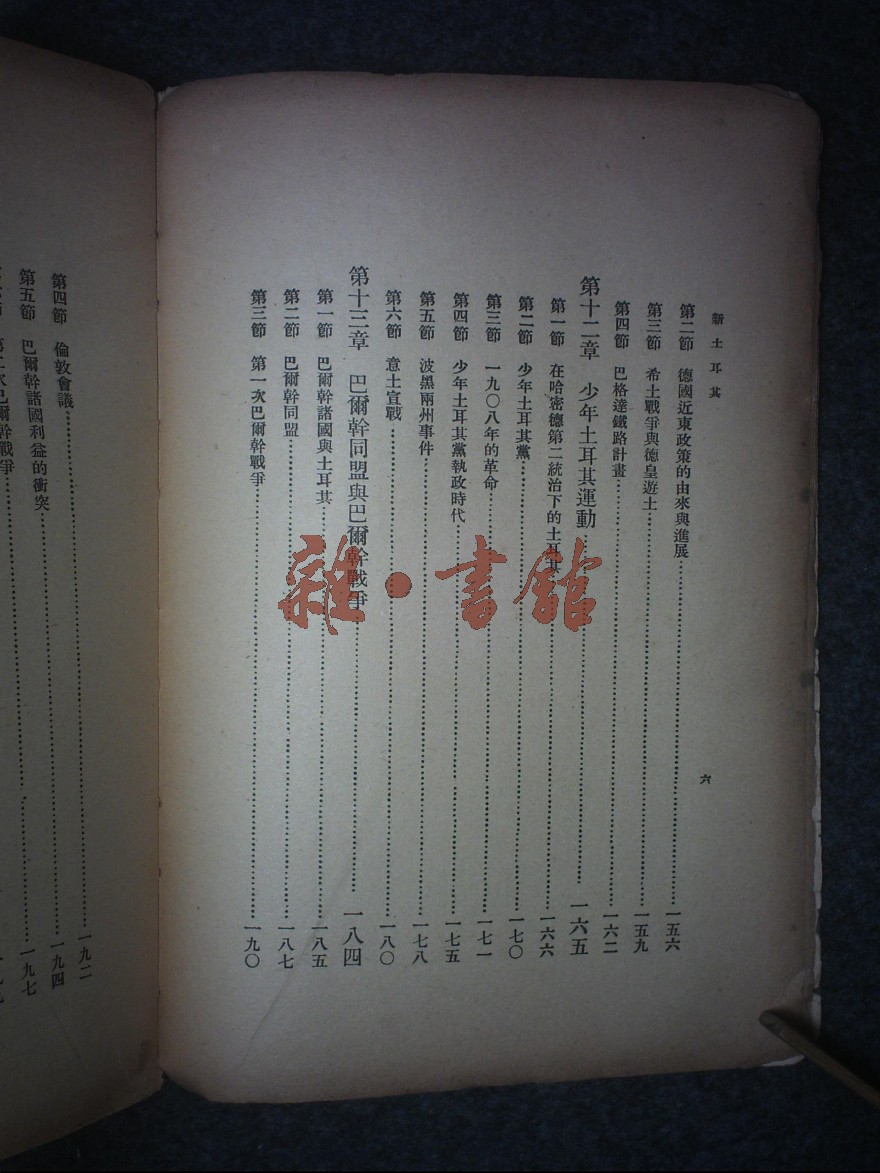 新土耳其
六
第二節 德國近東政策的由來與進展……一五六
第三節 希土戰爭與德皇遊土……一五九
第四節 巴格達鐵路計畫……一六二
第十二章 少年土耳其運動……一六五
第一節 在哈密德第二統治下的土耳其……一六六
第二節 少年土耳其黨……一七〇
第三節 一九〇八年的革命……一七一
第四節 少年土耳其黨執政時代……一七五
第五節 波黑兩州事件……一七八
第六節 意土宣戰……一八〇
第十三章 巴爾幹同盟與巴爾幹戰爭……一八四
第一節 巴爾幹諸國與土耳其……一八五
第二節 巴爾幹同盟……一八七
第三節 第一次巴爾幹戰爭……一九〇
第四節 倫敦會議……一九二
第五節 巴爾幹諸國利益的衝突……一九四
第二次巴爾幹戰爭……一九七
雜·書館